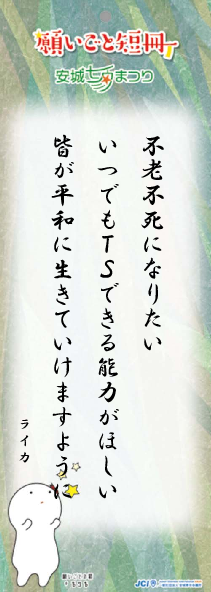 願いごと短冊
安城七夕まつり
不老不死になりたい
いつでもTSできる能力がほしい
皆が平和に生きていけますように
ライカ
JCI